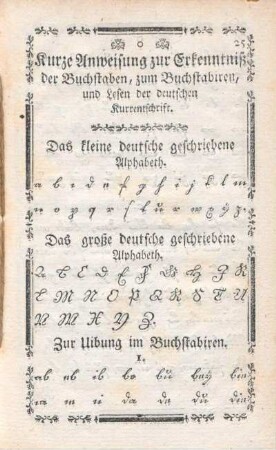 25
Kurze Anweisung zur Erkenntniß
der Buchstaben, zum Buchstabiren,
und Lesen der deutschen
Kurrentschrift.
Das kleine deutsche geschriebene
Alphabeth.
a b c d e f g h i j k l m
n o p q r s t u v w x y z.
Das große deutsche geschriebene
Alphabeth.
A B C D E F G H J K
L M N O P Q R S T U
V W X Y Z.
Zur Uibung im Buchstabiren.
I.
ab eb ib bo bu bey bin
am em im da de du din